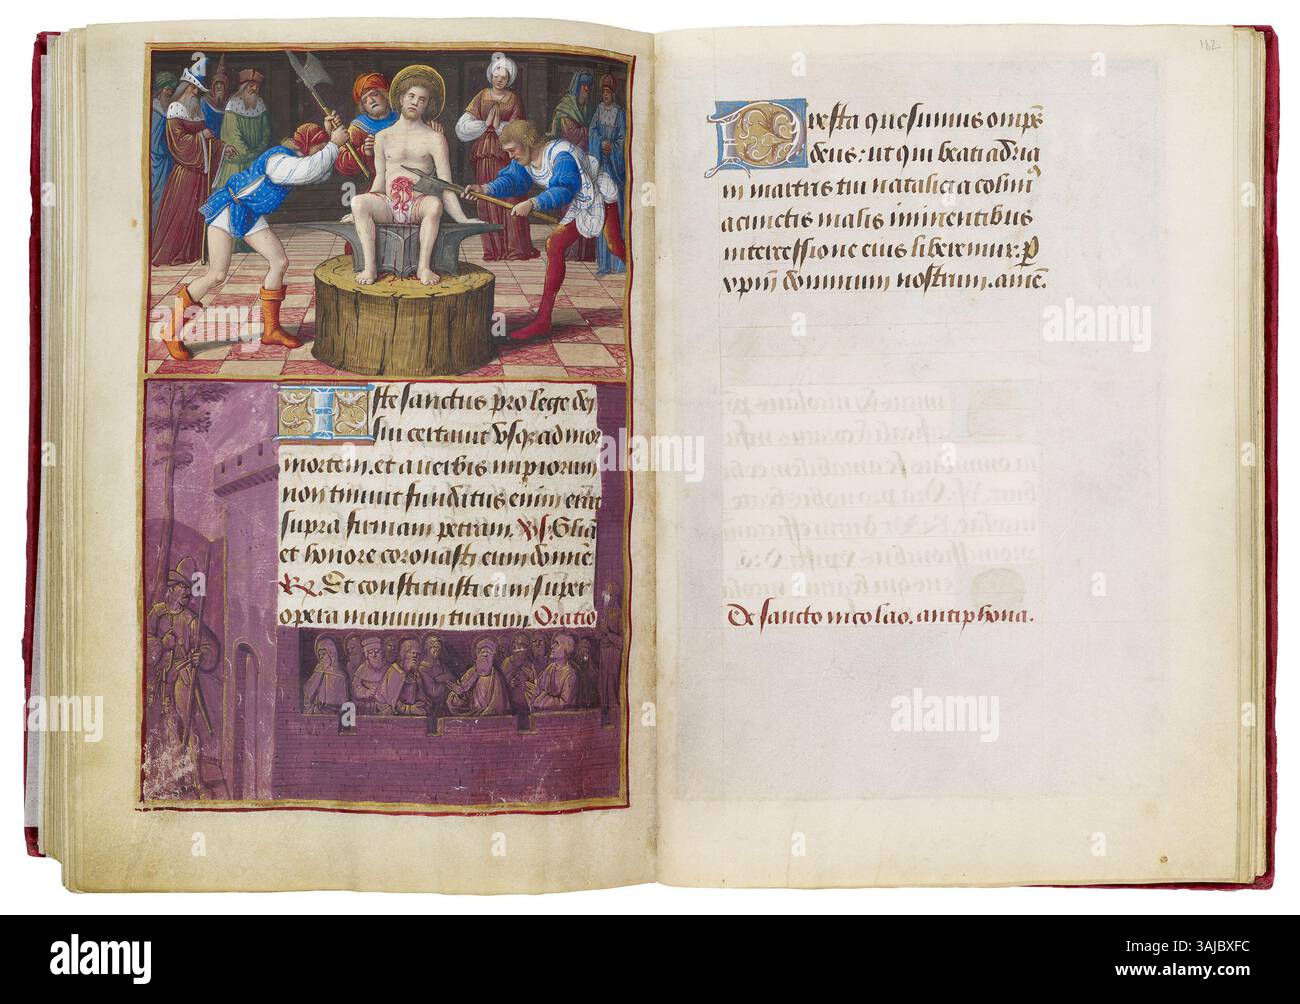 Iste sanctus pro lege dei
sui certauit usq; ad mor
mortem. et a uerbis impiorum
non timuit funditus enim erat
supra firmam petram. Vs. Gliã
et honore coronasti eum domine.
Rx. Et constituisti eum super
opera manuum tuarum. Oratio
182
Presta quesumus omps
deus: ut qui beati adria
ni martiris tui natalicia colim9
a cunctis malis iminentibus
intercessione eius liberemur: P
xpm dominum nostrum. amē.
De sancto nicolao. antiphona.
alamy
Image ID: 3AJBXFC
www.alamy.com